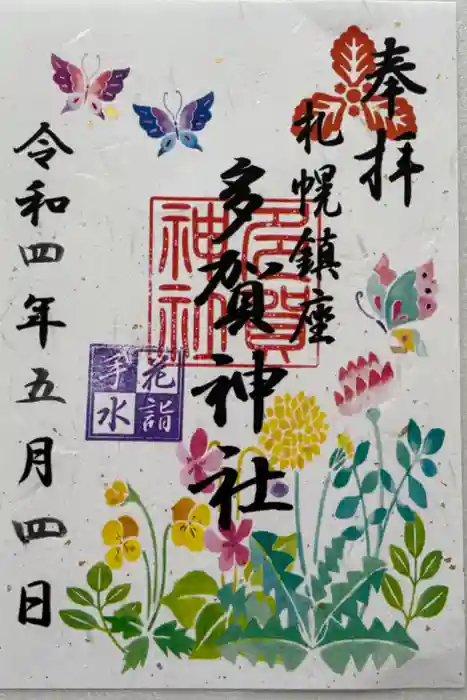 奉拝
札幌鎮座
多賀神社
多賀
神社
花詣
手水
令和四年五月四日